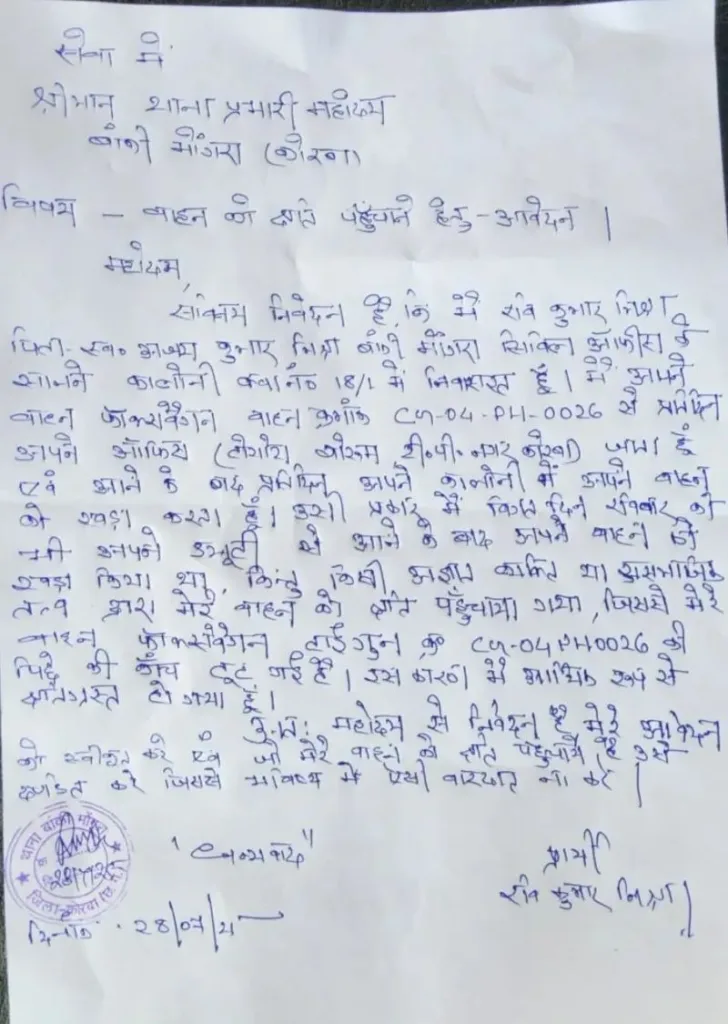 सेवा में
श्रीमान थाना प्रभारी महोदय
बांकी मोंगरा (कोरबा)
विषय - वाहन को क्षति पहुँचाने हेतु - आवेदन |
महोदय,
सविनय निवेदन है, कि मैं रवि कुमार मिश्रा
पिता - स्व० अजय कुमार मिश्रा बांकी मोंगरा सिविल ऑफीस के
सामने कालोनी क्वा नं० 18/1 में निवासरत हूँ। मैं अपने
वाहन फॉक्सवैगन वाहन क्रमांक CG-04-PH-0026 से प्रतिदिन
अपने ऑफिस ( टी०पी० नगर कोरबा) जाता हूँ
एवं आने के बाद प्रतिदिन अपने कालोनी में अपने वाहन
को खड़ा करता हूँ। उसी प्रकार मैं दिन रविवार को
भी अपने ड्यूटी से आने के बाद अपने वाहन को
खड़ा किया था, किन्तु किसी अज्ञात व्यक्ति या असमाजिक
तत्व द्वारा मेरे वाहन को क्षति पहुँचाया गया, जिससे मेरे
वाहन फॉक्सवैगन टाईगुन क्र CG-04PH0026 की
पिछे की काँच टूट गई है। इस कारण मैं आर्थिक रूप से
क्षतिग्रस्त हो गया हूँ।
अतः महोदय से निवेदन है मेरे आवेदन
को स्वीकृत करे एवं जो मेरे वाहन को क्षति पहुंचाये है उसे
दण्डित करे जिससे भविष्य में ऐसी वारदात ना करे |
थाना बांकी मोंगरा
28/7/25
जिला कोरबा (छ.ग.)
"धन्यवाद"
प्रार्थी
रवि कुमार मिश्रा
दिनांक - 28/07/25